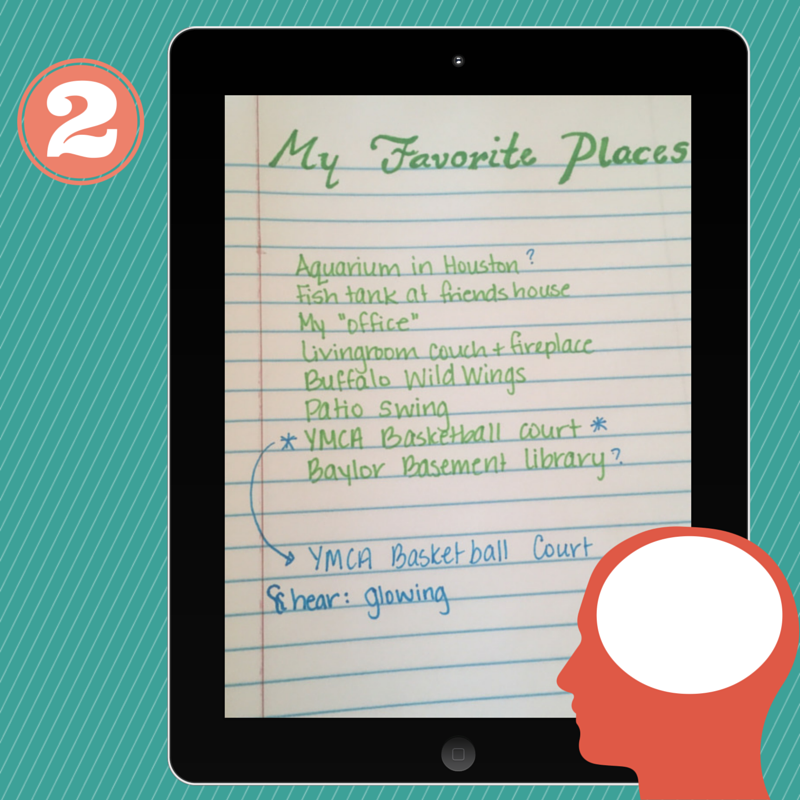 2
My Favorite Places
Aquarium in Houston ?
Fish tank at friends house
My "office"
Livingroom couch + fireplace
Buffalo Wild Wings
Patio swing
* YMCA Basketball court *
Baylor Basement library ?
YMCA Basketball Court
hear: glowing